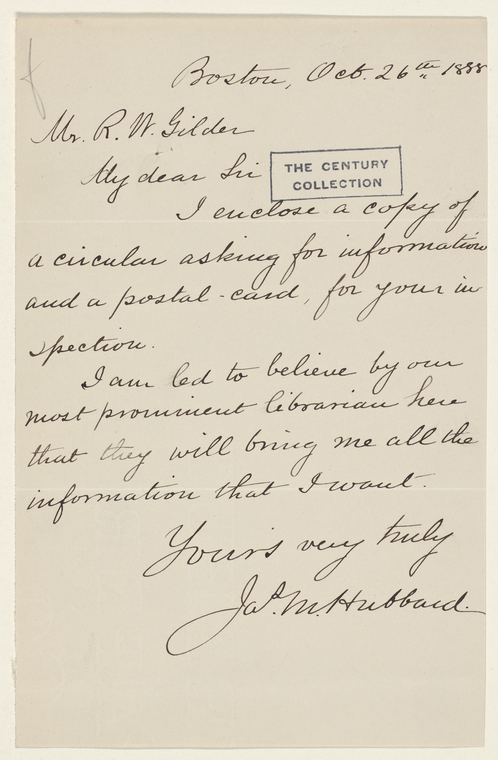 Boston, Oct. 26th 1888
Mr. R. W. Gilder
My dear Sir
THE CENTURY
COLLECTION
I enclose a copy of
a circular asking for information
and a postal-card, for your in
spection.
I am led to believe by our
most prominent librarian here
that they will bring me all the
information that I want.
Yours very truly
Jas. M. Hubbard.